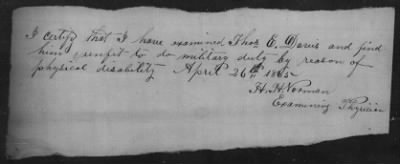 I certify that I have examined Thos E. Davis and find
him unfit to do military duty by reason of
physical disability April 26th 1865
H. H. Norman
Examining Physician